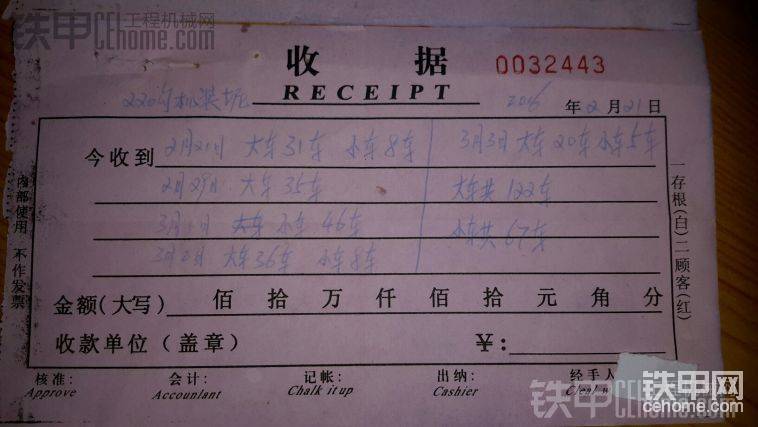 铁甲工程机械网
CEhome.com
收 据 0032443
RECEIPT
220勾机装坭 2016 年 2 月 21 日
今收到 2月21日 大车31车 小车8车 3月3日 大车20车 小车5车
2月29日 大车35车 大车共122车
3月1日 小车46车 小车共67车
3月2日 大车36车 小车8车
金额(大写) 佰 拾 万 仟 佰 拾 元 角 分
收款单位(盖章) ¥:
核准: 会计: 记帐: 出纳: 经手人
Approve Accountant Chalk it up Cashier
内部使用 不作发票
一存根(白)二顾客(红)
铁甲网
cehome.com